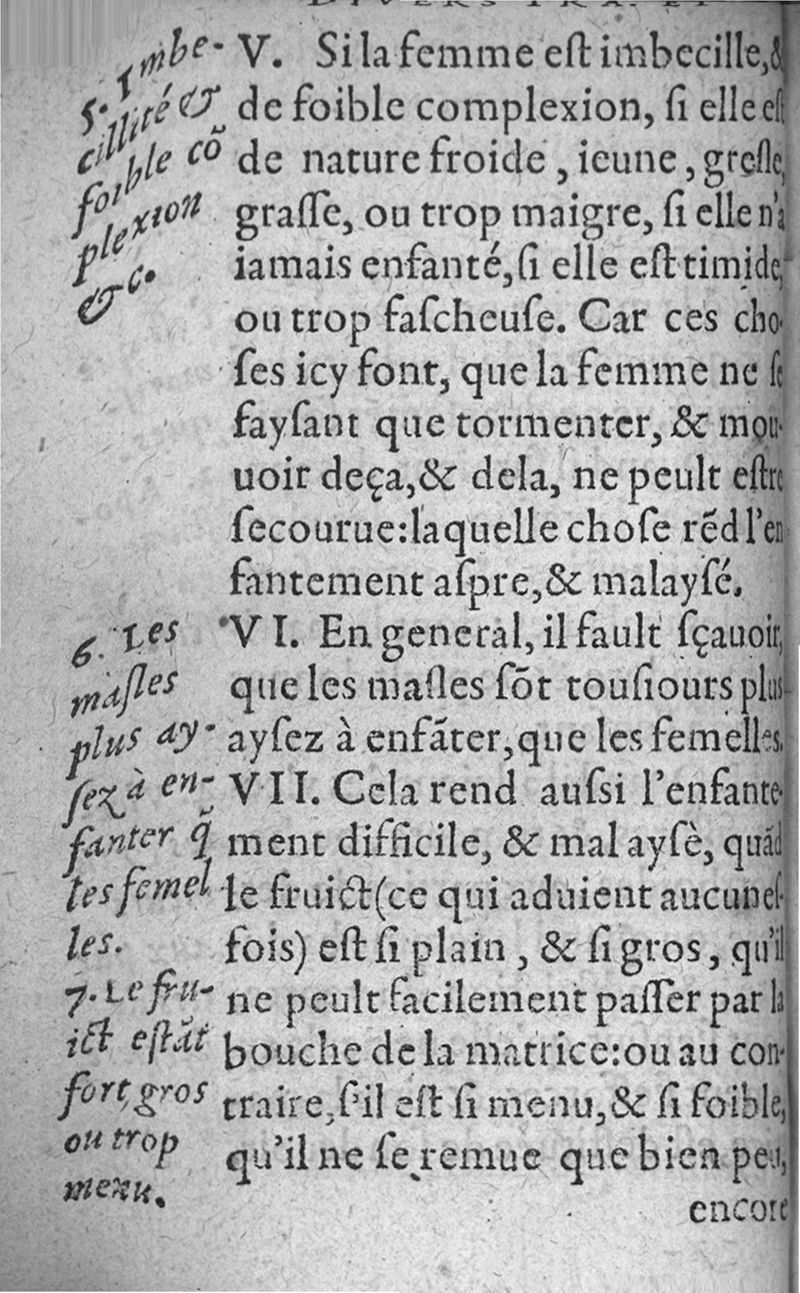 DIVERS TRA. ET
V. Si la femme eſt imbecille, &
de foible complexion, ſi elle eſt
de nature froide, ieune, greſle,
graſſe, ou trop maigre, ſi elle n'a
iamais enfanté, ſi elle eſt timide,
ou trop faſcheuſe. Car ces cho-
ſes icy font, que la femme ne ſe
fayſant que tormenter, & mou-
uoir deça, & dela, ne peult eſtre
ſecourue: laquelle choſe rẽd l'en
fantement aſpre, & malayſé.
VI. En general, il fault ſçauoir,
que les maſles ſõt touſiours plus
ayſez à enfãter, que les femelles.
VII. Cela rend auſsi l'enfante-
ment difficile, & mal ayſè, quãd
le fruict (ce qui aduient aucuneſ-
fois) eſt ſi plain, & ſi gros, qu'il
ne peult facilement paſſer par la
bouche de la matrice: ou au con-
traire, ſ'il eſt ſi menu, & ſi foible,
qu'il ne ſe remue que bien peu,
encore
5. Imbe-
cillité &
foible cõ
plexion
&c.
6. Les
maſles
plus ay-
ſez à en-
fanter q̃
les femel
les.
7. Le fru-
ict eſtãt
fort gros
ou trop
menu.